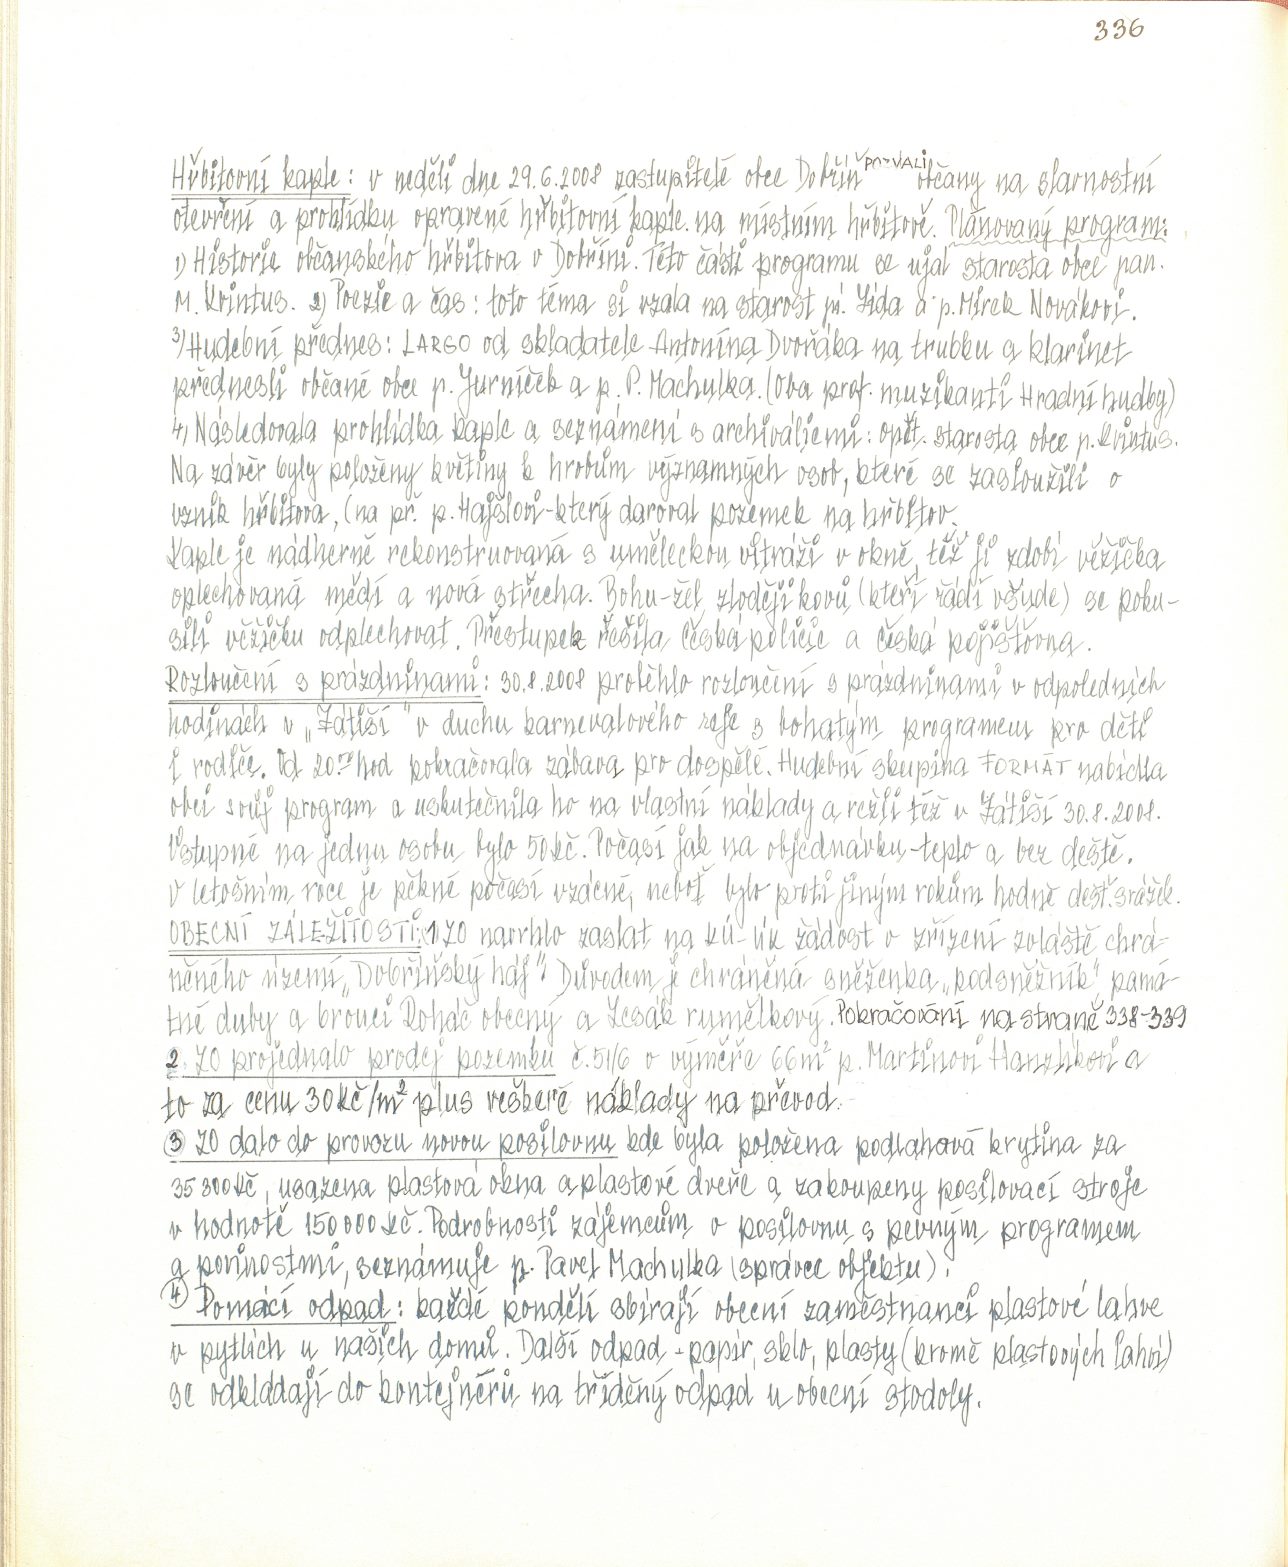 336
Hřbitovní kaple: v neděli dne 29.6.2008 zastupitelé obce Dobřín pozvali občany na slavnostní
otevření a prohlídku opravené hřbitovní kaple na místním hřbitově. Plánovaný program:
1) Historie občanského hřbitova v Dobříni. Této části programu se ujal starosta obce pan.
M. Krintus. 2) Poezie a čas: toto téma si vzala na starost pí. Zída a p. Mirek Novákovi.
3) Hudební přednes: LARGO od skladatele Antonína Dvořáka na trubku a klarinet
přednesli občané obce p. Jurníček a p. P. Machulka. (Oba prof. muzikanti Hradní hudby)
4) Následovala prohlídka kaple a seznámení s archiváliemi: opět starosta obce p. Krintus.
Na závěr byly položeny květiny k hrobům významných osob, které se zasloužili o
vznik hřbitova, (na př. p. Hajslovi-který daroval pozemek na hřbitov.
Kaple je nádherně rekonstruovaná s uměleckou vitráží v okně, též ji zdobí věžička
oplechovaná mědí a nová střecha. Bohu-žel zloději kovů (kteří řádí všude) se poku-
sili věžičku odplechovat. Přestupek řešila česká policie a česká pojišťovna.
Rozloučení s prázdninami: 30.8.2008 proběhlo rozloučení s prázdninami v odpoledních
hodinách v „Zátiší" v duchu karnevalového reje s bohatým programem pro děti
i rodiče. Od 20.00 hod pokračovala zábava pro dospělé. Hudební skupina FORMÁT nabídla
obci svůj program a uskutečnila ho na vlastní náklady a režii též v Zátiší 30.8.2008.
Vstupné na jednu osobu bylo 50 kč. Počasí jak na objednávku-teplo a bez deště.
V letošním roce je pěkné počasí vzácné, neboť bylo proti jiným rokům hodně dešť. srážek.
OBECNÍ ZÁLEŽITOSTI: 1 ZO navrhlo zaslat na KÚ-ÚK žádost o zřízení zvláště chrá-
něného území „Dobříňský háj". Důvodem je chráněná sněženka „podsněžník" pamá-
tné duby a brouci Roháč obecný a Zesák rumělkový. Pokračování na straně 338-339
2. ZO projednalo prodej pozemku č. 51/6 o výměře 66m² p. Martinovi Hanzlíkovi a
to za cenu 30 kč/m² plus veškeré náklady na převod.
3 ZO dalo do provozu novou posilovnu kde byla položena podlahavá krytina za
35 800 kč, usazena plastová okna a plastové dveře a zakoupeny posilovací stroje
v hodnotě 150 000 kč. Podrobnosti zájemcům o posilovnu s pevným programem
a povinostmi, seznámuje p. Pavel Machulka (správce objektu).
4 Domácí odpad: každé pondělí sbírají obecní zaměstnanci plastové lahve
v pytlích u našich domů. Další odpad - papír, sklo, plasty (kromě plastových lahví)
se odkládají do kontejnérů na tříděný odpad u obecní stodoly.